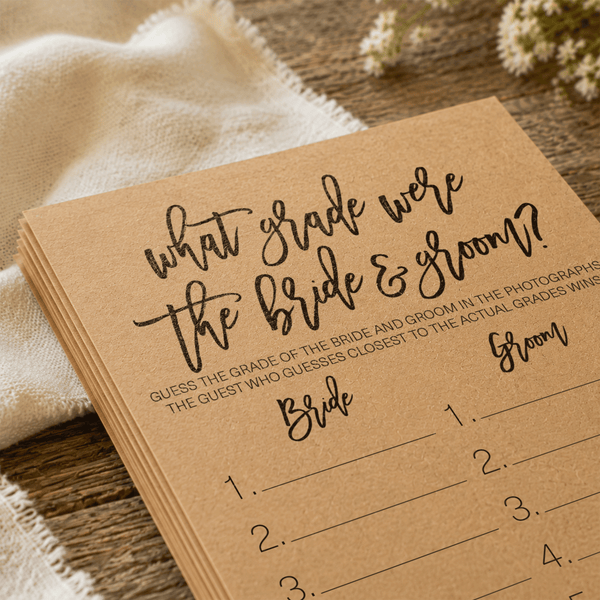 what grade were
the bride & groom?
GUESS THE GRADE OF THE BRIDE AND GROOM IN THE PHOTOGRAPHS
THE GUEST WHO GUESSES CLOSEST TO THE ACTUAL GRADES WINS
Bride
Groom
1.
1.
2.
2.
3.
3.
4.